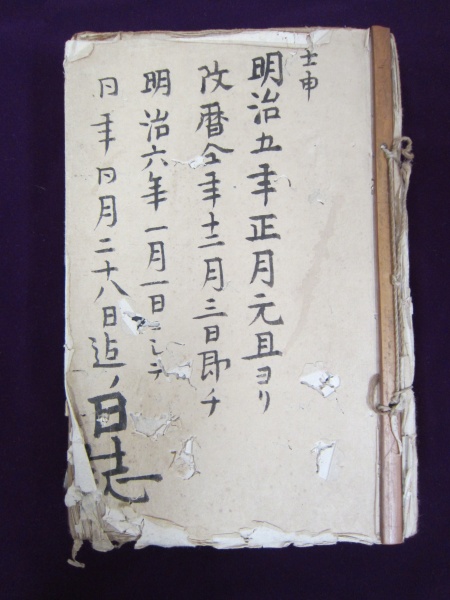 壬申
明治五年正月元旦ヨリ
改暦仝年十二月三日即チ
明治六年一月一日ニシテ
同年同月二十八日迠ノ日誌